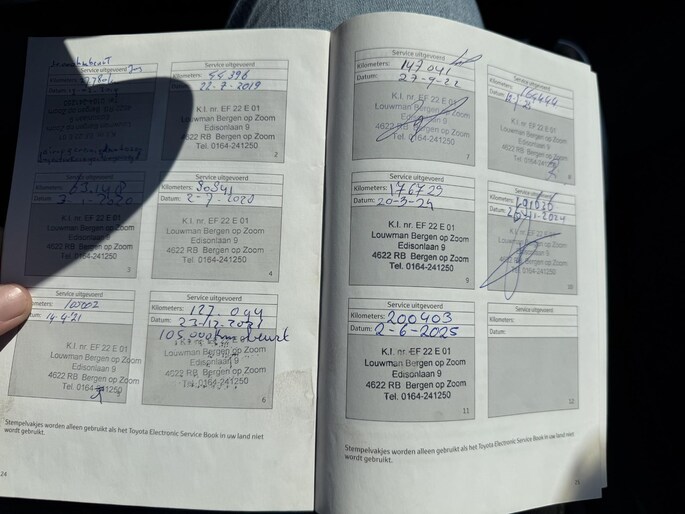 Service uitgevoerd
Kilometers:
Service uitgevoerd
Kilometers: 55396
Datum: 22-7-2019
K.I. nr. EF 22 E 01
Louwman Bergen op Zoom
Edisonlaan 9
4622 RB Bergen op Zoom
Tel. 0164-241250
2
Service uitgevoerd
Kilometers:
Datum:
K.I. nr. EF 22 E 01
Louwman Bergen op Zoom
Edisonlaan 9
4622 RB Bergen op Zoom
Tel. 0164-241250
3
Service uitgevoerd
Kilometers: 80841
Datum: 2-7-2020
K.I. nr. EF 22 E 01
Louwman Bergen op Zoom
Edisonlaan 9
4622 RB Bergen op Zoom
Tel. 0164-241250
4
Service uitgevoerd
Kilometers: 100002
Datum: 14-4-21
K.I. nr. EF 22 E 01
Louwman Bergen op Zoom
Edisonlaan 9
4622 RB Bergen op Zoom
Tel. 0164-241250
Service uitgevoerd
Kilometers: 127.044
Datum: 23-12-2021
105.000km beurt
Louwman Bergen op Zoom
Edisonlaan 9
4622 RB Bergen op Zoom
Tel. 0164-241250
6
Stempelvakjes worden alleen gebruikt als het Toyota Electronic Service Book in uw land niet
wordt gebruikt.
24
Service uitgevoerd
Kilometers: 147041
Datum: 27-9-22
K.I. nr. EF 22 E 01
Louwman Bergen op Zoom
Edisonlaan 9
4622 RB Bergen op Zoom
Tel. 0164-241250
7
Service uitgevoerd
Kilometers:
Datum:
K.I. nr. EF 22 E 01
Louwman Bergen op Zoom
Edisonlaan 9
4622 RB Bergen op Zoom
Tel. 0164-241250
8
Service uitgevoerd
Kilometers: 176729
Datum: 20-3-24
K.I. nr. EF 22 E 01
Louwman Bergen op Zoom
Edisonlaan 9
4622 RB Bergen op Zoom
Tel. 0164-241250
9
Service uitgevoerd
Kilometers:
Datum:
K.I. nr. EF 22 E 01
Louwman Bergen op Zoom
Edisonlaan 9
4622 RB Bergen op Zoom
Tel. 0164-241250
10
Service uitgevoerd
Kilometers: 200403
Datum: 2-6-2025
K.I. nr. EF 22 E 01
Louwman Bergen op Zoom
Edisonlaan 9
4622 RB Bergen op Zoom
Tel. 0164-241250
11
Service uitgevoerd
Kilometers:
Datum:
12
Stempelvakjes worden alleen gebruikt als het Toyota Electronic Service Book in uw land niet
wordt gebruikt.